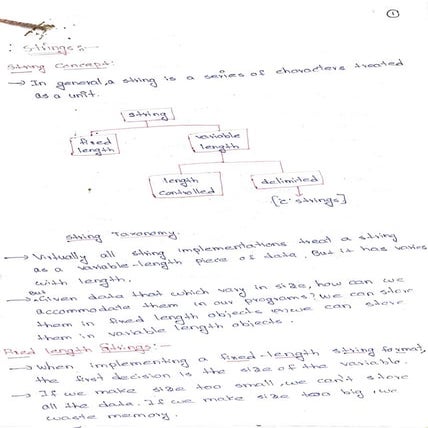 1
: Strings:-
String Concept:
→ In general, a string is a series of characters treated
as a unit.
string
fixed
length
variable
length
length
controlled
delimited
['C' strings]
String Taxonomy.
→ Virtually all string implementations treat a string
as a variable-length piece of data. But it has varies
with length.
But
→ Given data that which vary in size, how can we
accommodate them in our programs? we can store
them in fixed length objects we can store
them in variable length objects.
Fixed length Strings:-
→ When implementing a fixed-length string format,
the first decision is the size of the variable.
→ If we make size too small, we can't store
all the data. If we make size too big, we
waste memory.